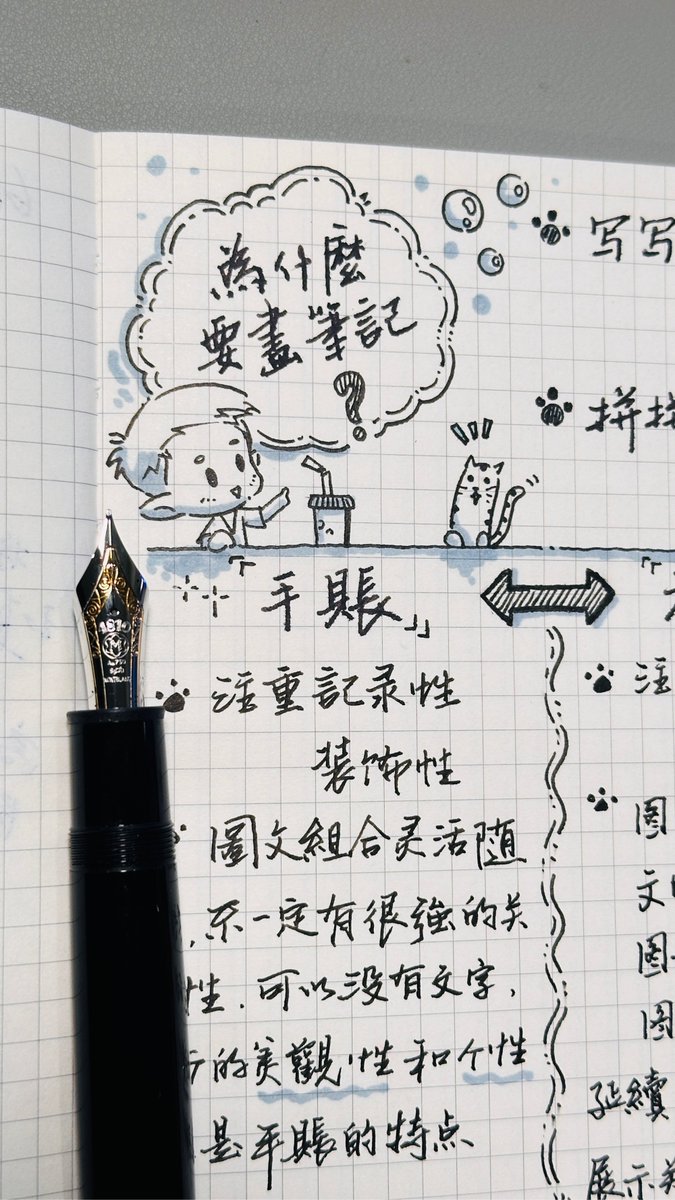 為什麼
要畫筆記
?
写写
拼拼
「手賬」
注重記录性
装饰性
圖文組合灵活随
,不一定有很強的关
性.可以没有文字,
的美觀性和个性
是手賬的特点
「
注
圖
文
圖
圖
延續
展示
1814
M